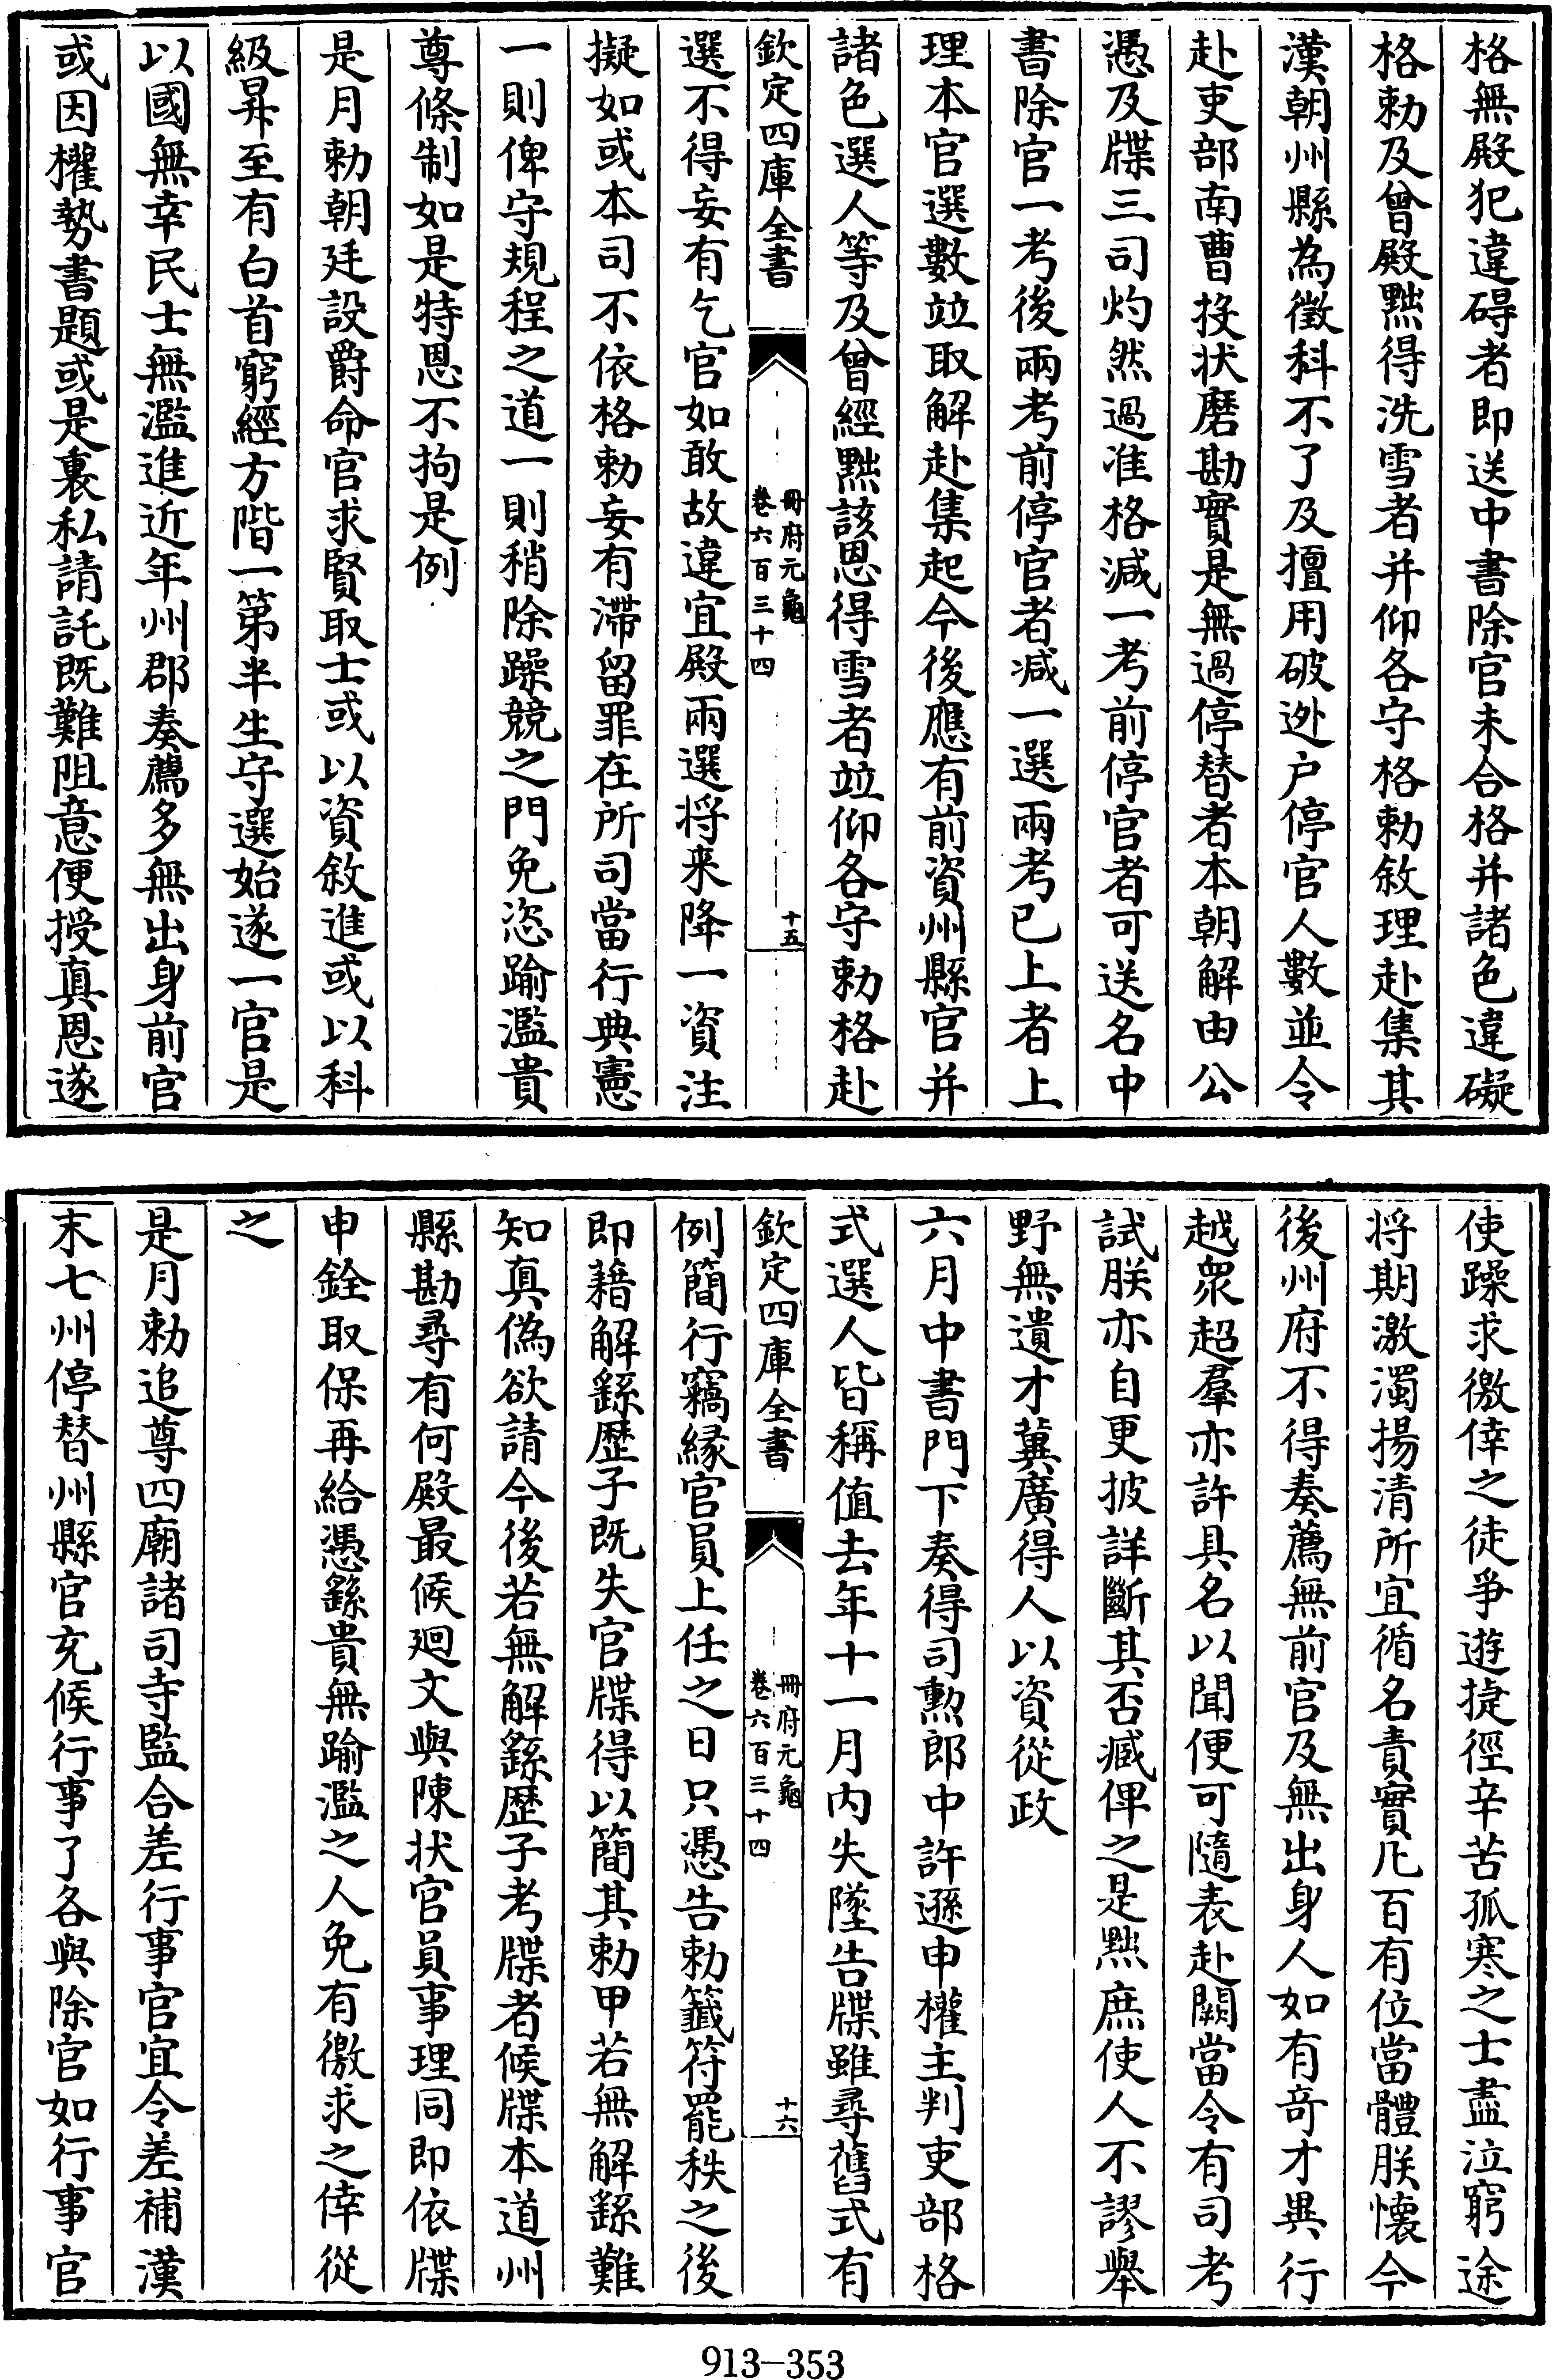 格無殿犯違碍者即送中書除官未合格并諸色違礙
格勅及曾殿黜得洗雪者并仰各守格勅敘理赴集其
漢朝州縣為徵科不了及擅用破迯户停官人數並令
赴吏部南曹投状磨勘實是無過停替者本朝解由公
憑及牒三司灼然過准格減一考前停官者可送名中
書除官一考後兩考前停官者减一選兩考已上者上
理本官選數竝取解赴集起今後應有前資州縣官并
諸色選人等及曾經黜該恩得雪者竝仰各守勅格赴
欽定四庫全書
冊府元龜
卷六百三十四
十五
選不得妄有乞官如敢故違宜殿兩選将来降一資注
擬如或本司不依格勅妄有滯留罪在所司當行典憲
一則俾守規程之道一則稍除躁競之門免恣踰濫貴
尊條制如是特恩不拘是例
是月勅朝廷設爵命官求賢取士或以資敘進或以科
級昇至有白首窮經方階一第半生守選始遂一官是
以國無幸民士無濫進近年州郡奏薦多無出身前官
或因權勢書題或是裏私請託既難阻意便授真恩遂
使躁求徼倖之徒爭遊捷徑辛苦孤寒之士盡泣窮途
将期激濁揚清所宜循名責實凡百有位當體朕懷今
後州府不得奏薦無前官及無出身人如有竒才異行
越衆超羣亦許具名以聞便可隨表赴闕當令有司考
試朕亦自更披詳斷其否臧俾之是黜庶使人不謬舉
野無遺才冀廣得人以資從政
六月中書門下奏得司勲郎中許遜申權主判吏部格
式選人皆稱值去年十一月内失墜告牒雖尋舊式有
欽定四庫全書
冊府元龜
卷六百三十四
十六
例簡行竊緣官員上任之日只憑告勅籤符罷秩之後
即藉解繇歴子既失官牒得以簡其勅甲若無解繇難
知真偽欲請今後若無解繇歴子考牒者候牒本道州
縣勘尋有何殿最候廻文與陳状官員事理同即依牒
申銓取保再給憑繇貴無踰濫之人免有徼求之倖從
之
是月勅追尊四廟諸司寺監合差行事官宜令差補漢
末七州停替州縣官充候行事了各與除官如行事官
913-353